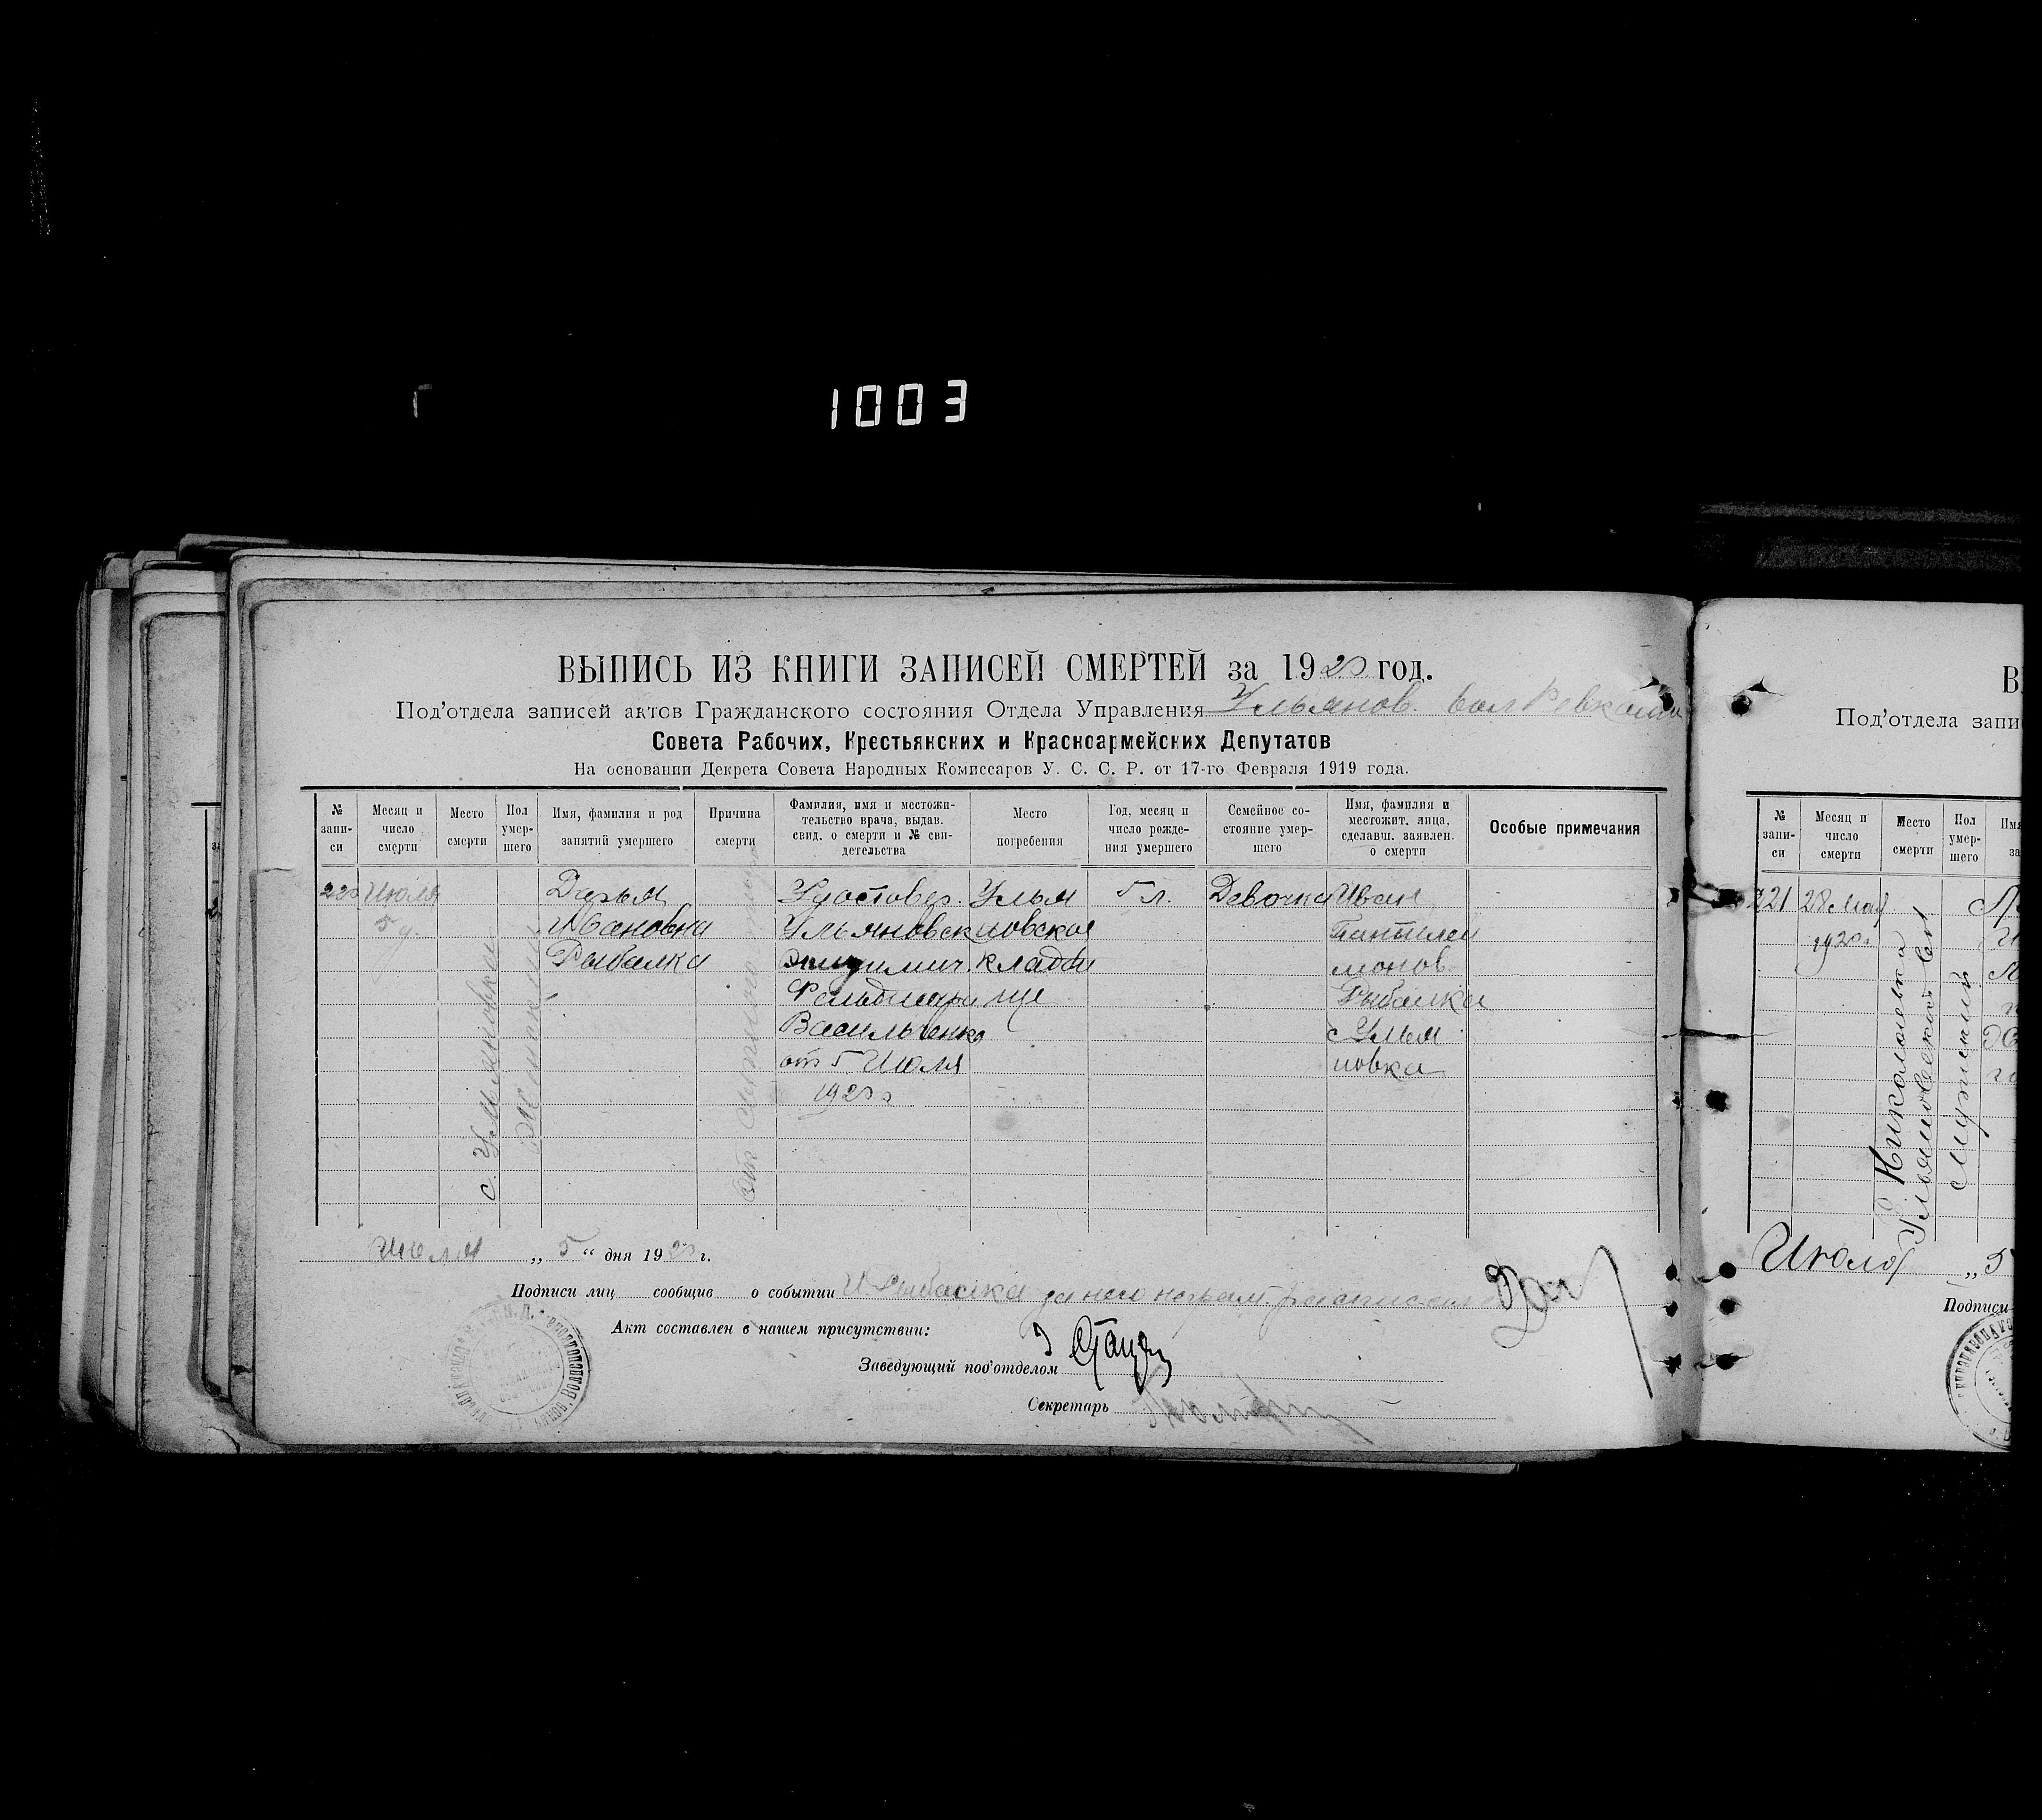 1003
ВЫПИСЬ ИЗ КНИГИ ЗАПИСЕЙ СМЕРТЕЙ за 1920 год.
Под'отдела записей актов Гражданского состояния Отдела Управления Ульянов. вол Ревкома
Совета Рабочих, Крестьянских и Красноармейских Депутатов
На основании Декрета Совета Народных Комиссаров У. С. С. Р. от 17-го Февраля 1919 года.
№ запи-си
Месяц и число смерти
Место смерти
Пол умер-шего
Имя, фамилия и род занятий умершего
Причина смерти
Фамилия, имя и местожи-тельство врача, выдав. свид. о смерти и № сви-детельства
Место погребения
Год, месяц и число рожде-ния умершего
Семейное со-стояние умер-шего
Имя, фамилия и местожит. лица, сделавш. заявлен. о смерти
Особые примечания
220
Июля
5 д.
с. Ульяновка
Женский
Дарья
Ивановна
Рыбалка
Удостовер.
Ульяновск
эпидемич.
Фельдшера
Васильченко
от 5 Июля
1920 г
Улья
новское
кладби
ще
5 л.
Девочка
Иван
Пантелеи
монов
Рыбалка
с Улья
новка
Июля „ 5 “ дня 1920 г.
Подписи лиц сообщив о событии И Рыбалка за него неграм. расписался
Акт составлен в нашем присутствии:
Заведующий под'отделом
Секретарь
В
Под'отдела запи
№ запи-си
Месяц и число смерти
Место смерти
Пол умер-шего
Имя
за
221
28 мая
1920 г.
с Никольевка
Ульяновской вол
Мужской
Июля „ 5
Подписи